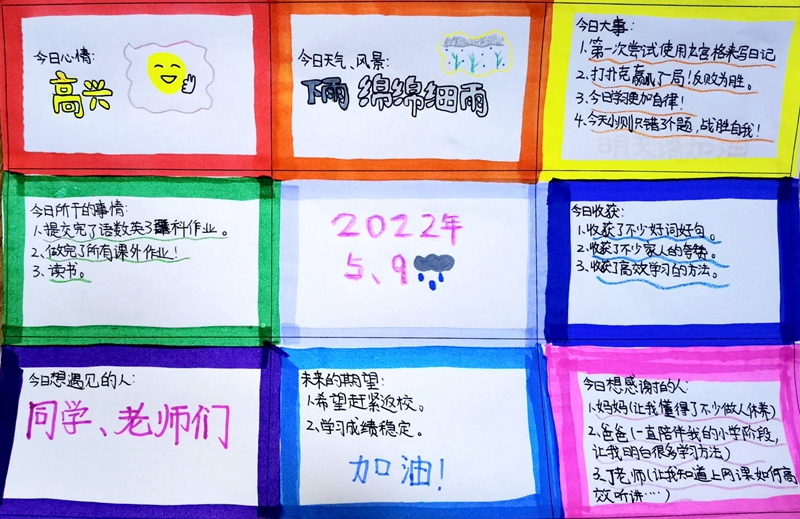 今日心情:
高兴
今日天气、风景:
下雨 绵绵细雨
今日大事:
1.第一次尝试使用九宫格来写日记
2.打扑克赢了一局!反败为胜。
3.今日学习更加自律!
4.今天小则只错3个题,战胜自我!
今日所干的事情:
1.提交完了语数英3科作业。
2.做完了所有课外作业!
3、读书。
2022年
5、9
今日收获:
1.收获了不少好词好句。
2.收获了不少家人的夸赞。
3.收获了高效学习的方法。
今日想遇见的人:
同学、老师们
未来的期望:
1.希望赶紧返校。
2.学习成绩稳定。
加油!
今日想感谢的人:
1.妈妈(让我懂得了不少做人休养)
2.爸爸(一直陪伴我的小学阶段,
让我明白很多学习方法)
3.丁老师(让我知道上网课如何高
效听讲……)